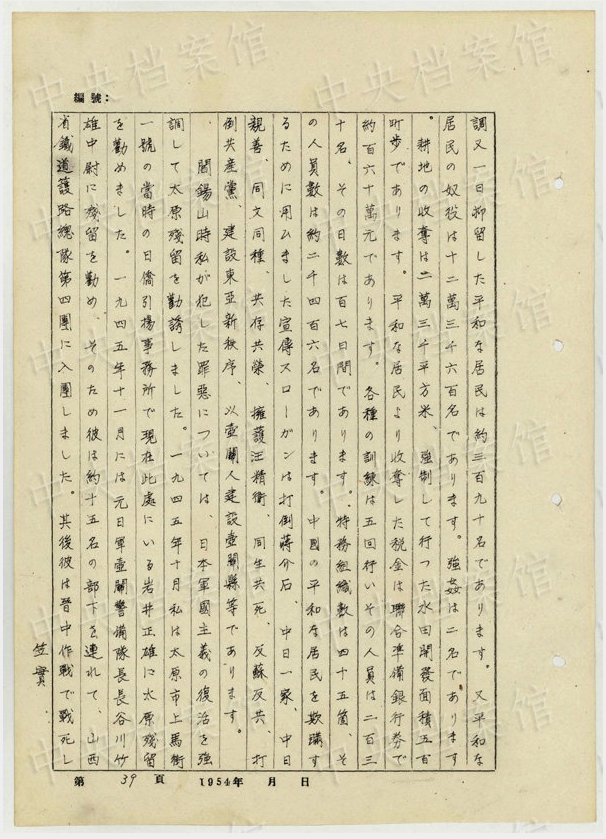 編號：
調又一日抑留した平和な居民は約三百九十名であります。又平和な
居民の奴役は十二萬三千六百名であります。強姦は二名であります
。耕地の收奪は二萬三千平方米、強制して行つた水田開發面積五百
町歩であります。平和な居民より收奪した税金は聯合準備銀行券で
約百六十萬元であります。各種の訓練は五回行いその人員は二百三
十名、その日數は百七日間であります。特務組織數は四十五箇、そ
の人員數は約二千四百六名であります。中國の平和な居民を欺瞞す
るために用ひました宣傳スローガンは打倒蔣介石、中日一家、中日
親善、同文同種、共存共榮、擁護汪精衛、同生共死、反蘇反共、打
倒共産黨、建設東亞新秩序、以壺關人建設壺關縣等であります。
閻錫山時私が犯した罪惡については、日本軍國主義の復活を強
調して太原殘留を勸誘しました。一九四五年十月私は太原市上馬街
一號の當時の日僑引揚事務所で現在此處にいる岩井正雄に太原殘留
を勸めました。一九四五年十一月には元日軍壺關警備隊長長谷川竹
雄中尉に殘留を勸め、そのため彼は約十五名の部下を連れて、山西
省鐵道護路總隊第四團に入團しました。其後彼は晉中作戰で戰死し
笠實
第 39 頁 1954年 月 日
中央档案馆